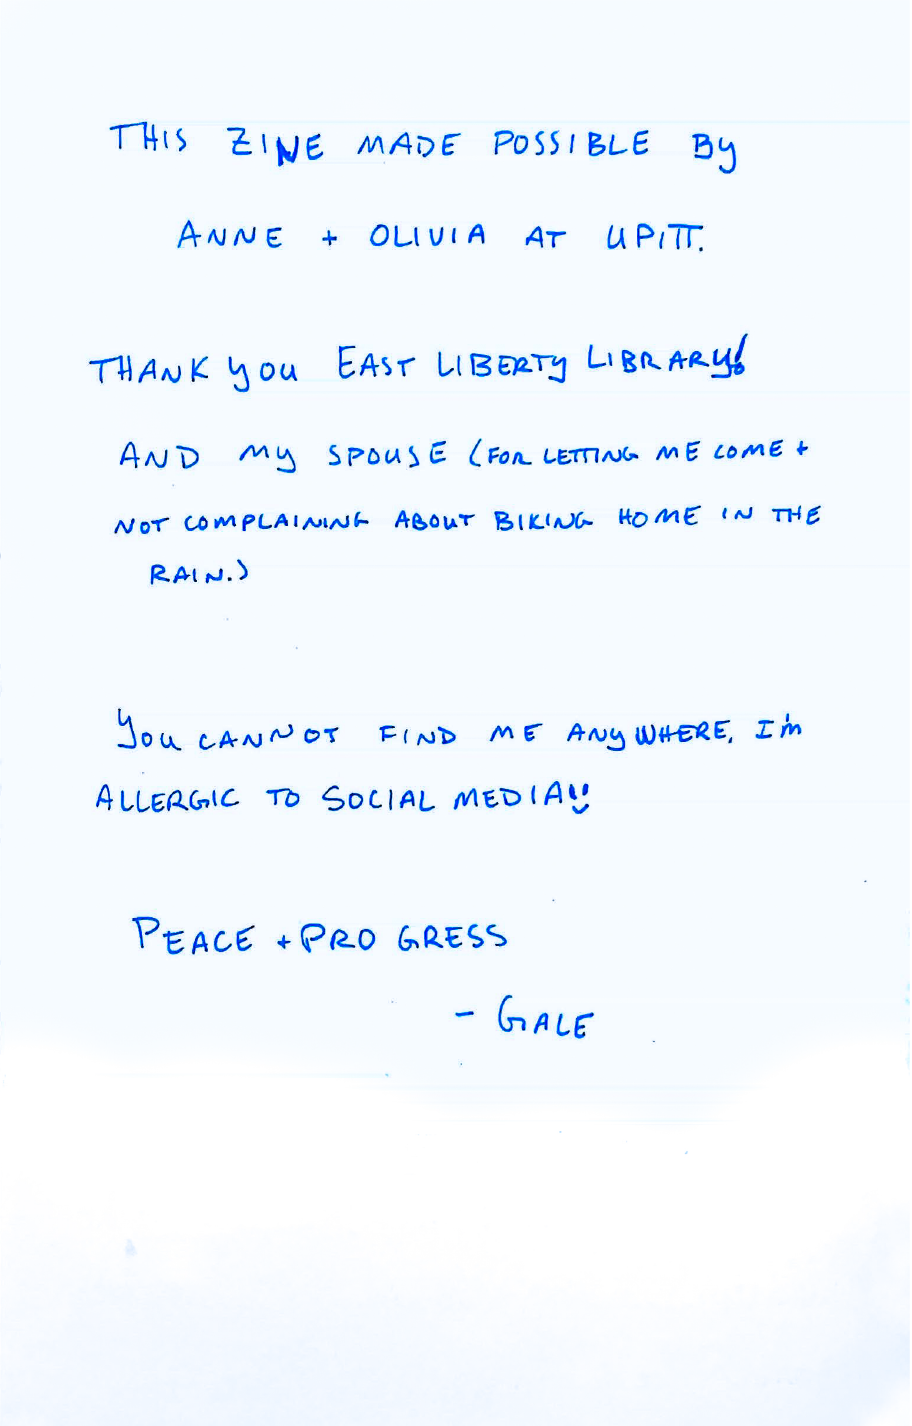 THIS ZINE MADE POSSIBLE BY
ANNE + OLIVIA AT UPITT.
THANK YOU EAST LIBERTY LIBRARY!
AND MY SPOUSE (FOR LETTING ME COME +
NOT COMPLAINING ABOUT BIKING HOME IN THE
RAIN.)
YOU CANNOT FIND ME ANYWHERE, I'm
ALLERGIC TO SOCIAL MEDIA!!
PEACE + PROGRESS
- GALE